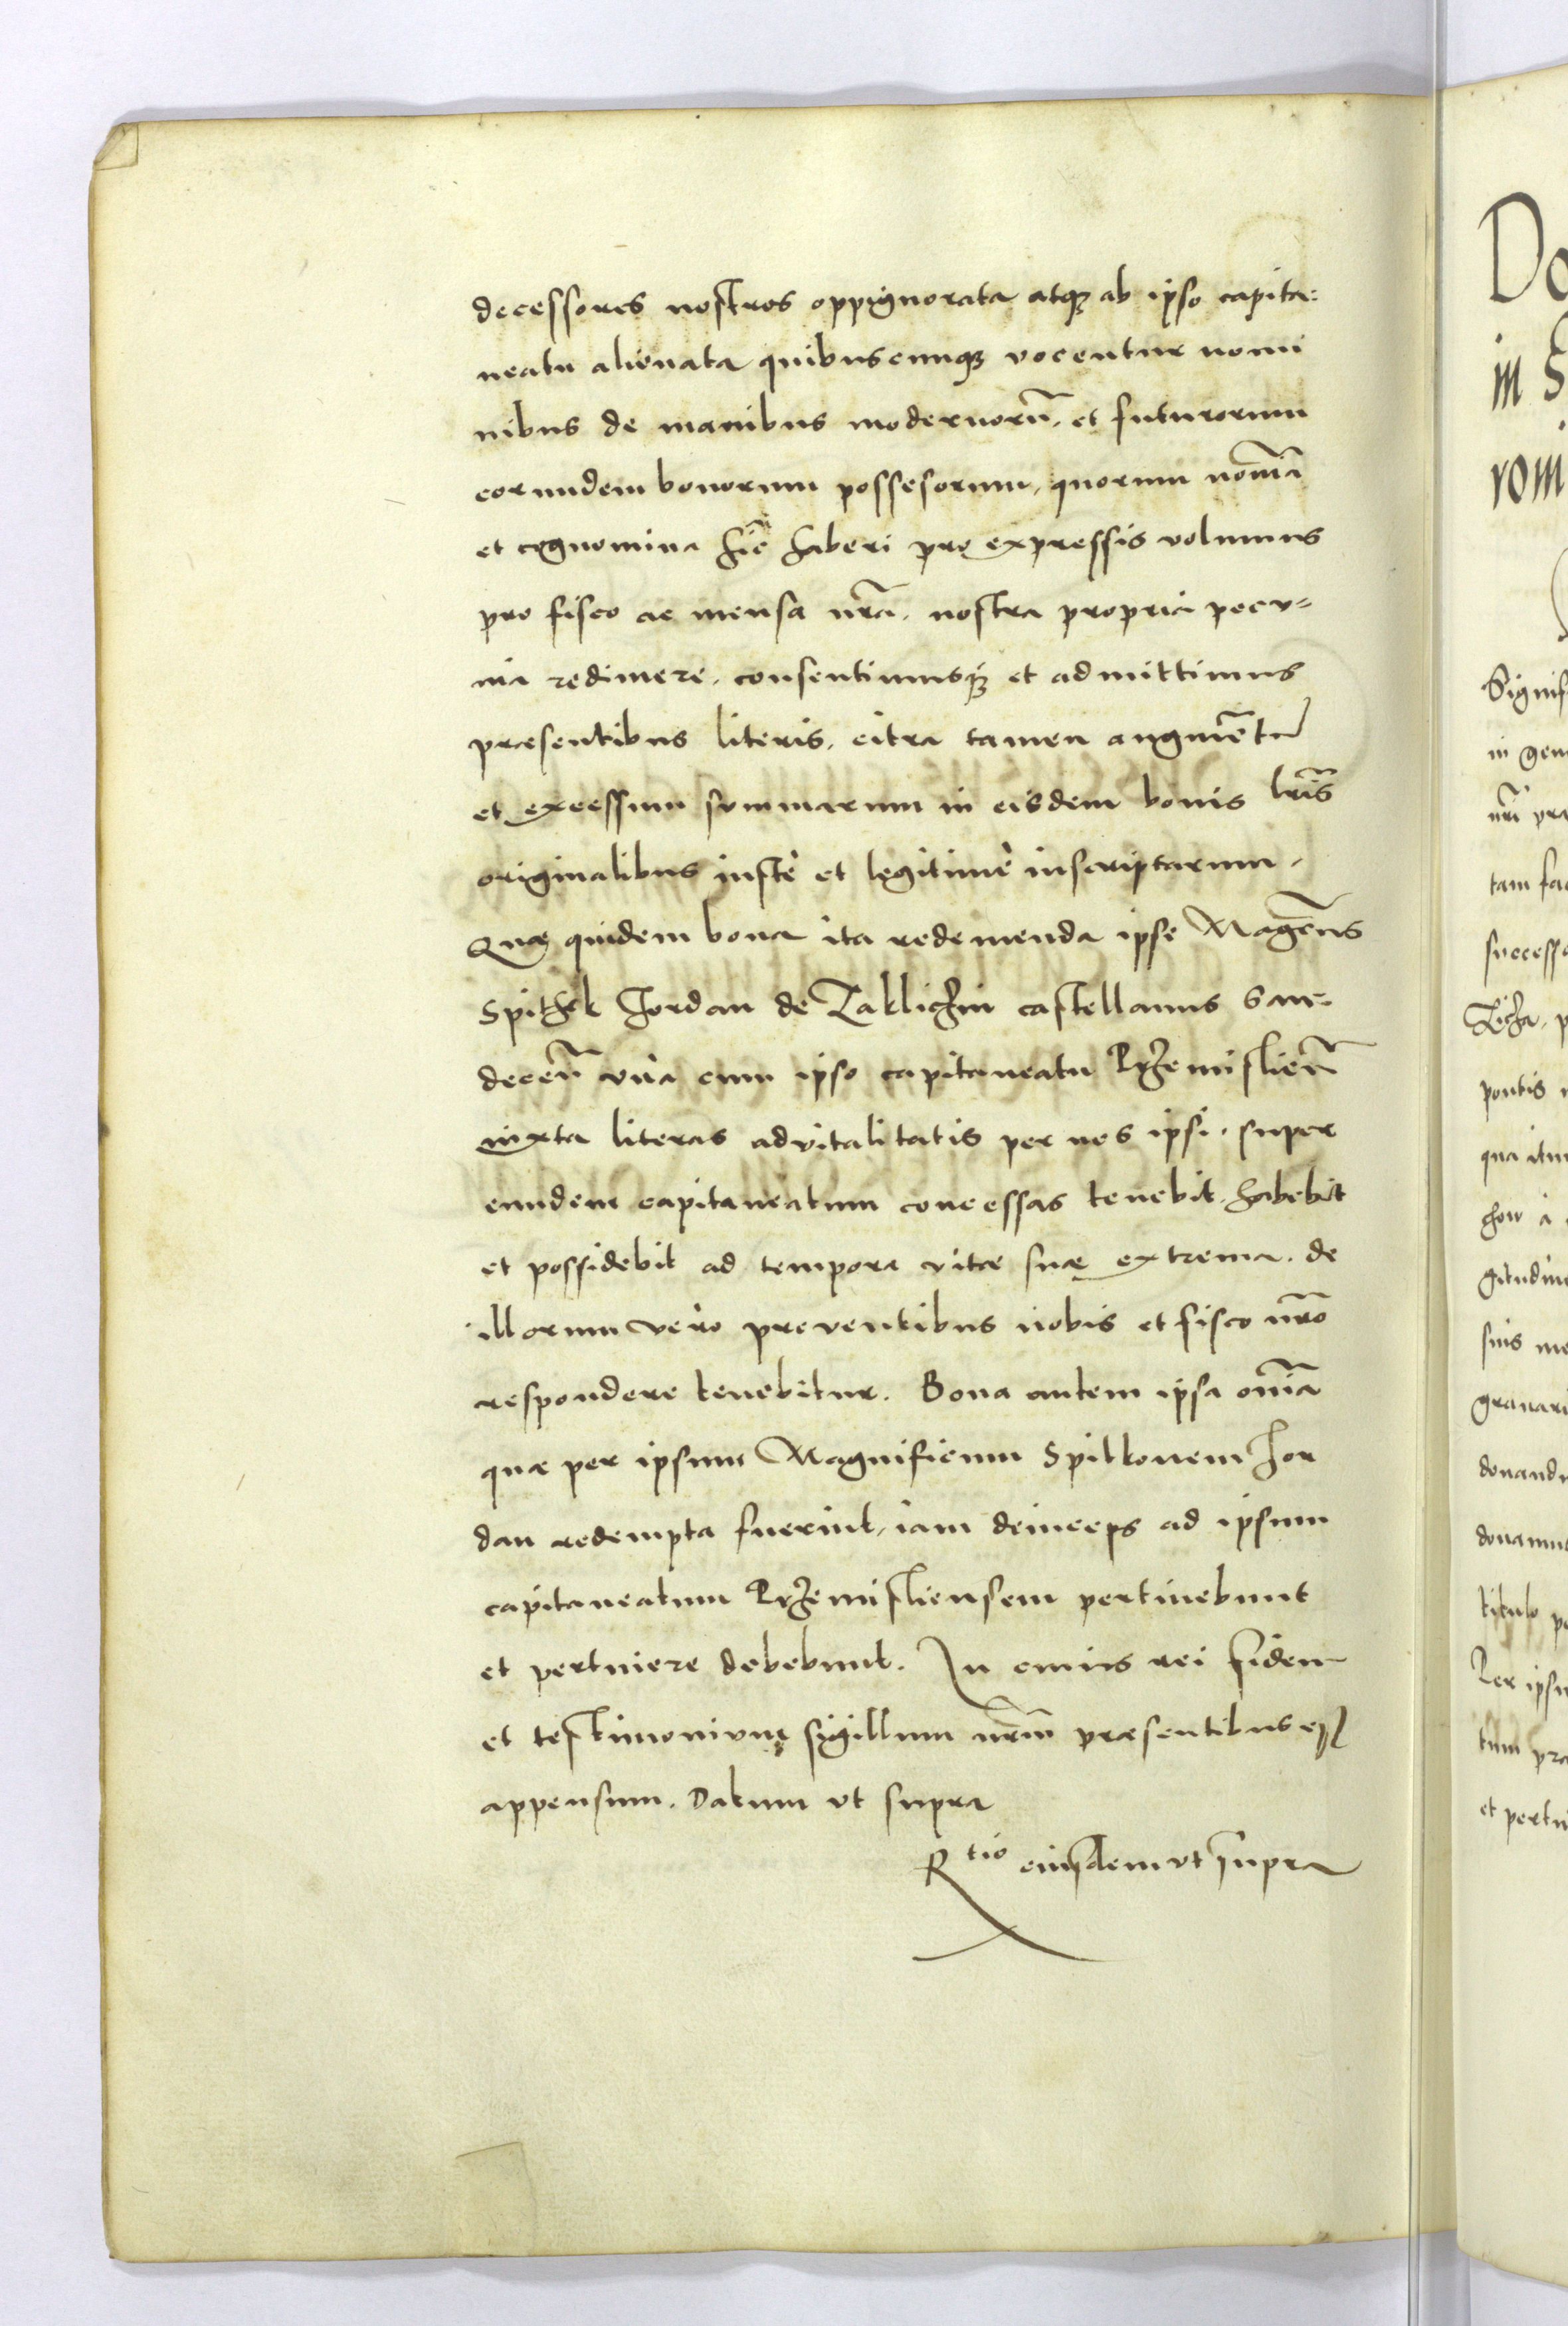 decessores nostros oppignorata atqз ab ipso capita:
neatu alienata quibuscunqз vocentur nomi
nibus de manibus modernorū, et futurorum
eorundem bonorum possesorum, quorum nom̄a
et cognomina hic haberi pro expressis volumus
pro fisco ac mensa nr̄a, nostra propria pecu=
nia redimere, consentimusqз et admittimus
præsentibus literis, citra tamen augmētū
et excessum summarum in eisdem bonis lr̄is
originalibus iustè et legitimè inscriptarum.
Quæ quidem bona ita redemenda ipse Magc̄us
Spithek Jordan de Zaklichin castellanus San-
decen̄ vnà cum ipso capitaneatu Przemislien̄
iuxta literas advitalitatis per nos ipsi super
eundem capitaneatum concessas tenebit, habebit
et possidebit ad tempora vitæ suæ extrema. de
illorum vero proventibus nobis et fisco nr̄o
respondere tenebitur. Bona autem ipsa om̄ia
quæ per ipsum Magnificum Spitkonem Jor
dan redempta fuerint, iam deinceps ad ipsum
capitaneatum Przemisliensem pertinebunt
et pertinere debebunt. In cuius rei fidem
et testimonium sigillum nr̄m præsentibus e{st}
appensum. Datum vt supra
R tio eiusdem vt supra
Do
in S
rom
Signif
in gen
nr̄i pra
tam fac
success
Licha, p
pontis
qua itur
chow à
gitudine
suis me
granari
donand
donamus
titulo pe
Per ipsu
tum pra
et pertin